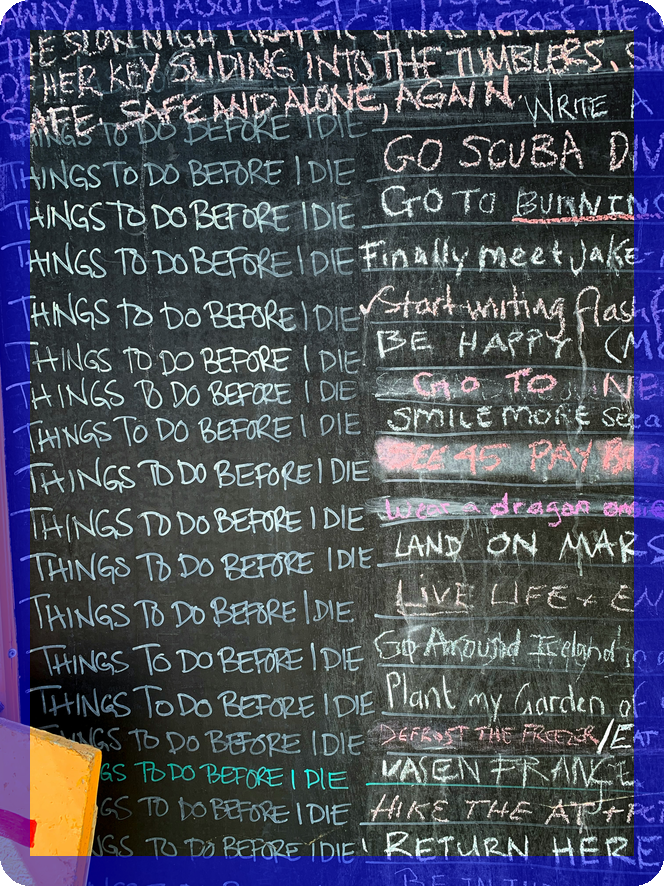 AWAY. WITH ACROSS. THE
E SLOW NIGHT TRAFFIC & WAS ACROSS. THE
HER KEY SLIDING INTO THE TUMBLERS, S
SAFE. SAFE AND ALONE, AGAIN.
THINGS TO DO BEFORE I DIE WRITE A
THINGS TO DO BEFORE I DIE GO SCUBA DIV
THINGS TO DO BEFORE I DIE GO TO BURNIN
THINGS TO DO BEFORE I DIE Finally meet Jake
THINGS TO DO BEFORE I DIE ✓Start writing flash
THINGS TO DO BEFORE I DIE BE HAPPY (M
THINGS TO DO BEFORE I DIE GO TO NE
THINGS TO DO BEFORE I DIE SMILE MORE
THINGS TO DO BEFORE I DIE SEE 45 PAY
THINGS TO DO BEFORE I DIE Wear a dragon
THINGS TO DO BEFORE I DIE LAND ON MARS
THINGS TO DO BEFORE I DIE LIVE LIFE + EN
THINGS TO DO BEFORE I DIE Go Around Iceland in a
THINGS TO DO BEFORE I DIE Plant my Garden of
THINGS TO DO BEFORE I DIE DEFROST THE FREEZER/EAT
GS TO DO BEFORE I DIE FRANCE
GS TO DO BEFORE I DIE HIKE THE AT + PC
NGS TO DO BEFORE I DIE RETURN HERE
BE IN